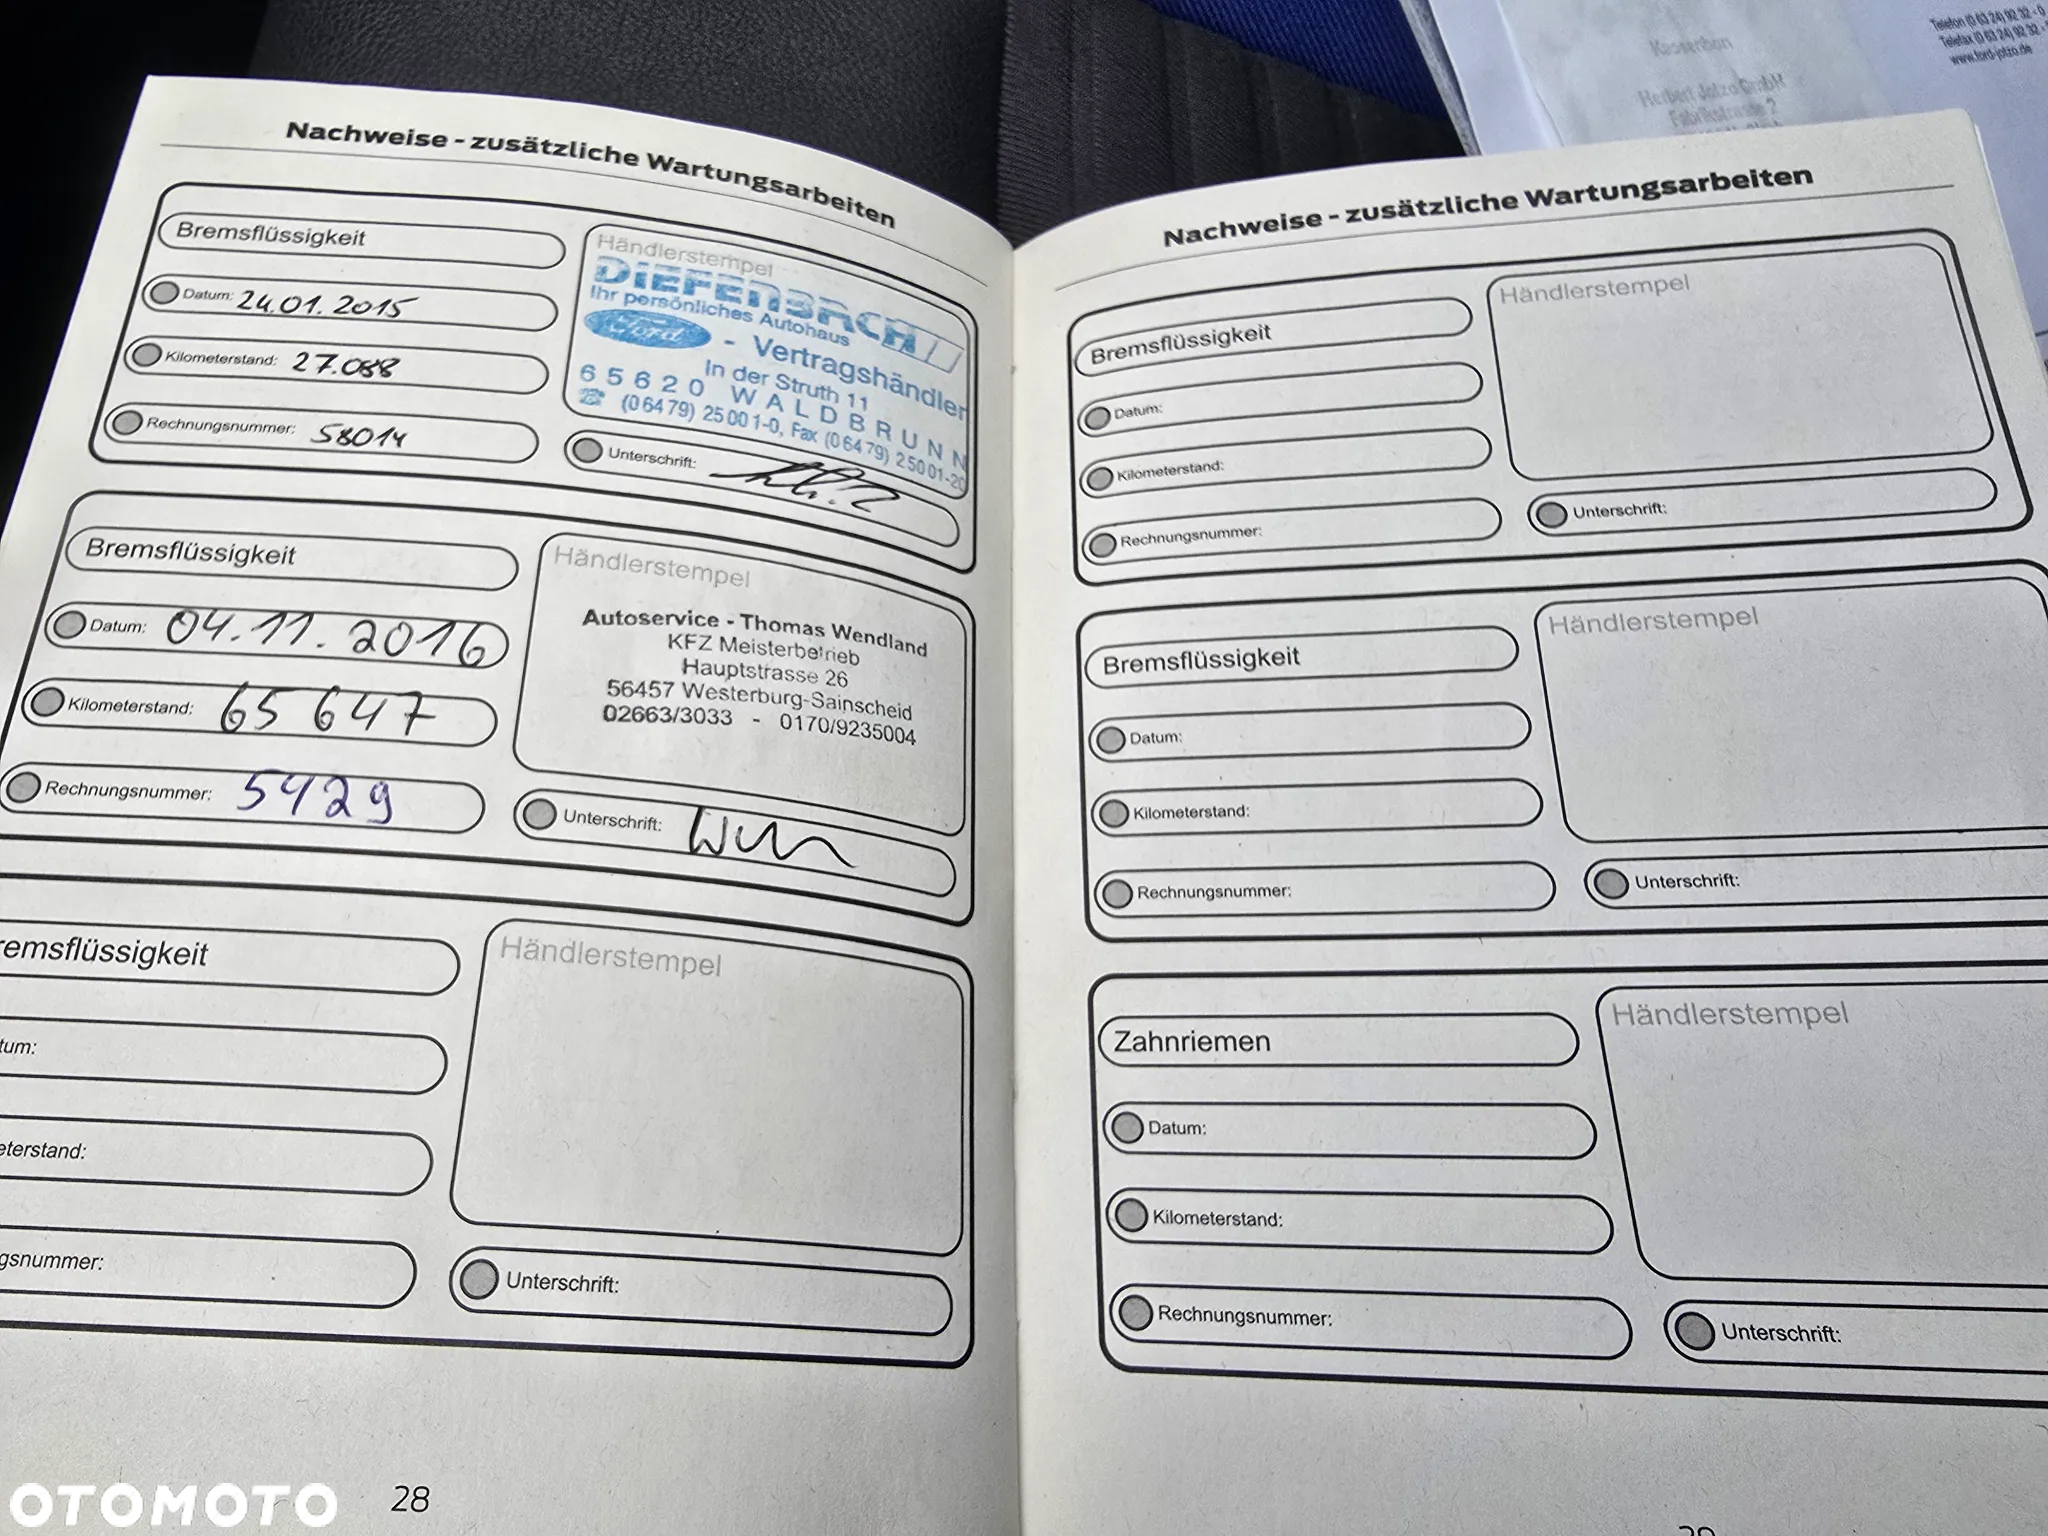 Kassenbon
Herbert Jotzo GmbH
Fabrikstrasse 2
Telefon (0 63 24) 92 32 - 0
Telefax (0 63 24) 92 32 -
www.ford-jotzo.de
Nachweise - zusätzliche Wartungsarbeiten
Bremsflüssigkeit
Datum: 24.01.2015
Kilometerstand: 27.088
Rechnungsnummer: 58014
Händlerstempel
DIEFENBACH
Ihr persönliches Autohaus
Ford - Vertragshändler
In der Struth 11
65620 WALDBRUNN
☎ (06479) 25001-0, Fax (06479) 25001-20
Unterschrift:
Bremsflüssigkeit
Datum: 04.11.2016
Kilometerstand: 65 647
Rechnungsnummer: 5429
Händlerstempel
Autoservice - Thomas Wendland
KFZ Meisterbetrieb
Hauptstrasse 26
56457 Westerburg-Sainscheid
02663/3033 - 0170/9235004
Unterschrift:
remsflüssigkeit
tum:
eterstand:
gsnummer:
Händlerstempel
Unterschrift:
28
Nachweise - zusätzliche Wartungsarbeiten
Bremsflüssigkeit
Datum:
Kilometerstand:
Rechnungsnummer:
Händlerstempel
Unterschrift:
Bremsflüssigkeit
Datum:
Kilometerstand:
Rechnungsnummer:
Händlerstempel
Unterschrift:
Zahnriemen
Datum:
Kilometerstand:
Rechnungsnummer:
Händlerstempel
Unterschrift:
OTOMOTO